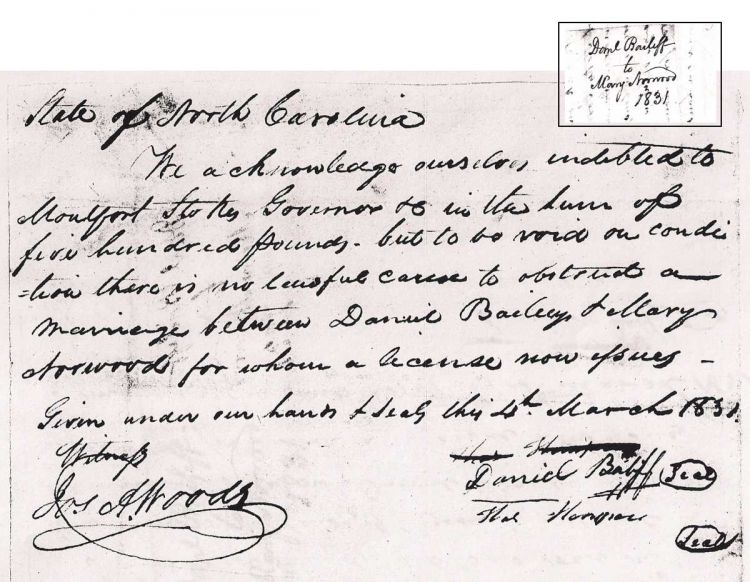 Danl Bailiff
to
Mary Norwood
1831
State of North Carolina
We acknowledge ourselves indebted to
Montfort Stokes Governor &c in the sum of
five hundred pounds - but to be void on condi
=tion there is no lawful cause to obstruct a
marriage between Daniel Bailey & Mary
Norwood for whom a license now issues -
Given under our hands & seals this 4th March 1831
Witness
Daniel Seal
Jos A. Woods
Seal